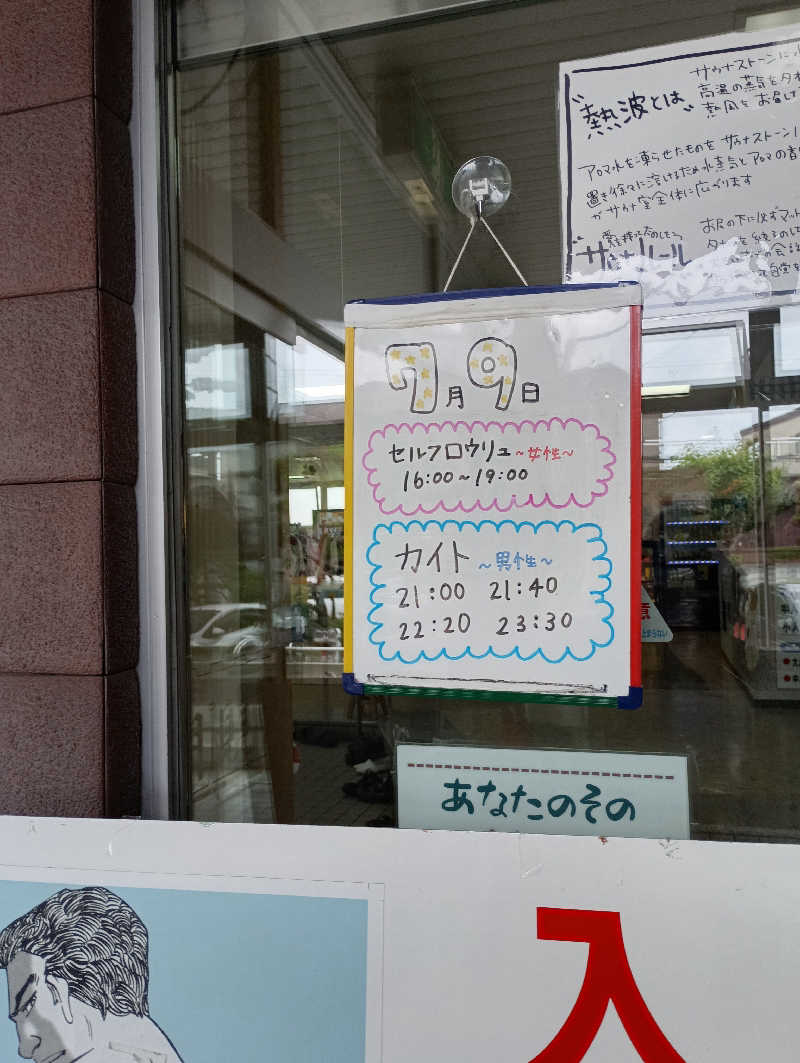 サウナストーンに
高温の蒸気を
"熱波とは"
熱風をお届け
アロマ水を凍らせたものをサウナストーンに
置き徐々に溶けるため水蒸気とアロマの香
がサウナ室全体に広がります
お尻の下に必ずマット
7月9日
セルフロウリュ～女性～
16:00～19:00
カイト～男性～
21:00 21:40
22:20 23:30
あなたのその
入